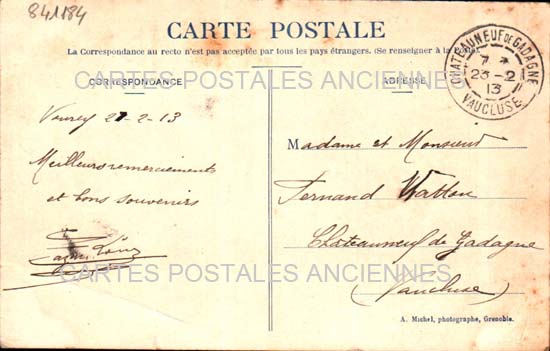 841184
CARTE POSTALE
La Correspondance au recto n'est pas acceptée par tous les pays étrangers. (Se renseigner à la Poste).
CORRESPONDANCE
ADRESSE
CHATEAUNEUF DE GADAGNE
7 *
23-2
13
VAUCLUSE
CARTES POSTALES ANCIENNES
21-2-13
Meilleurs remerciements
et bons souvenirs
Madame et Monsieur
Fernand
Châteauneuf de Gadagne
(Vaucluse)
CARTES POSTALES ANCIENNES
A. Michel, photographe, Grenoble.